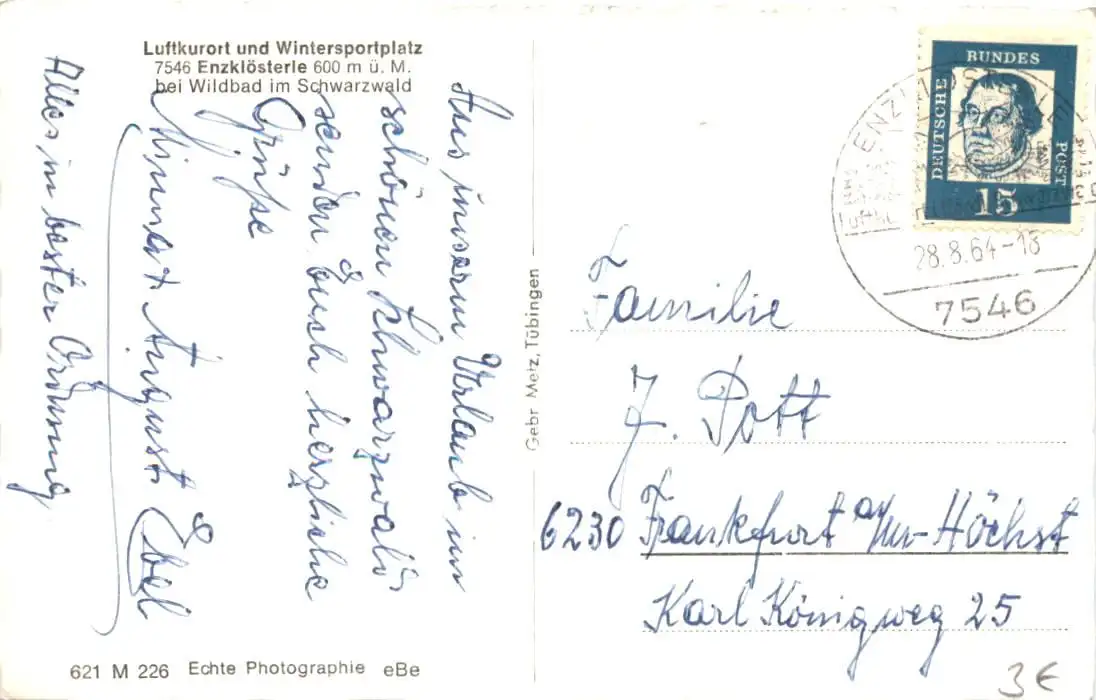 Luftkurort und Wintersportplatz
7546 Enzklösterle 600 m ü. M.
bei Wildbad im Schwarzwald
Aus unserm Urlaub im
schönen Schwarzwald
senden Euch herzliche
Grüße
Minna + August Ebel
Alles in bester Ordnung
621 M 226 Echte Photographie eBe
Gebr Metz, Tübingen
DEUTSCHE
BUNDES
POST
15
28.8.64-18
7546
Familie
J. Pott
6230 Frankfurt a/M-Höchst
Karl Königweg 25
3€